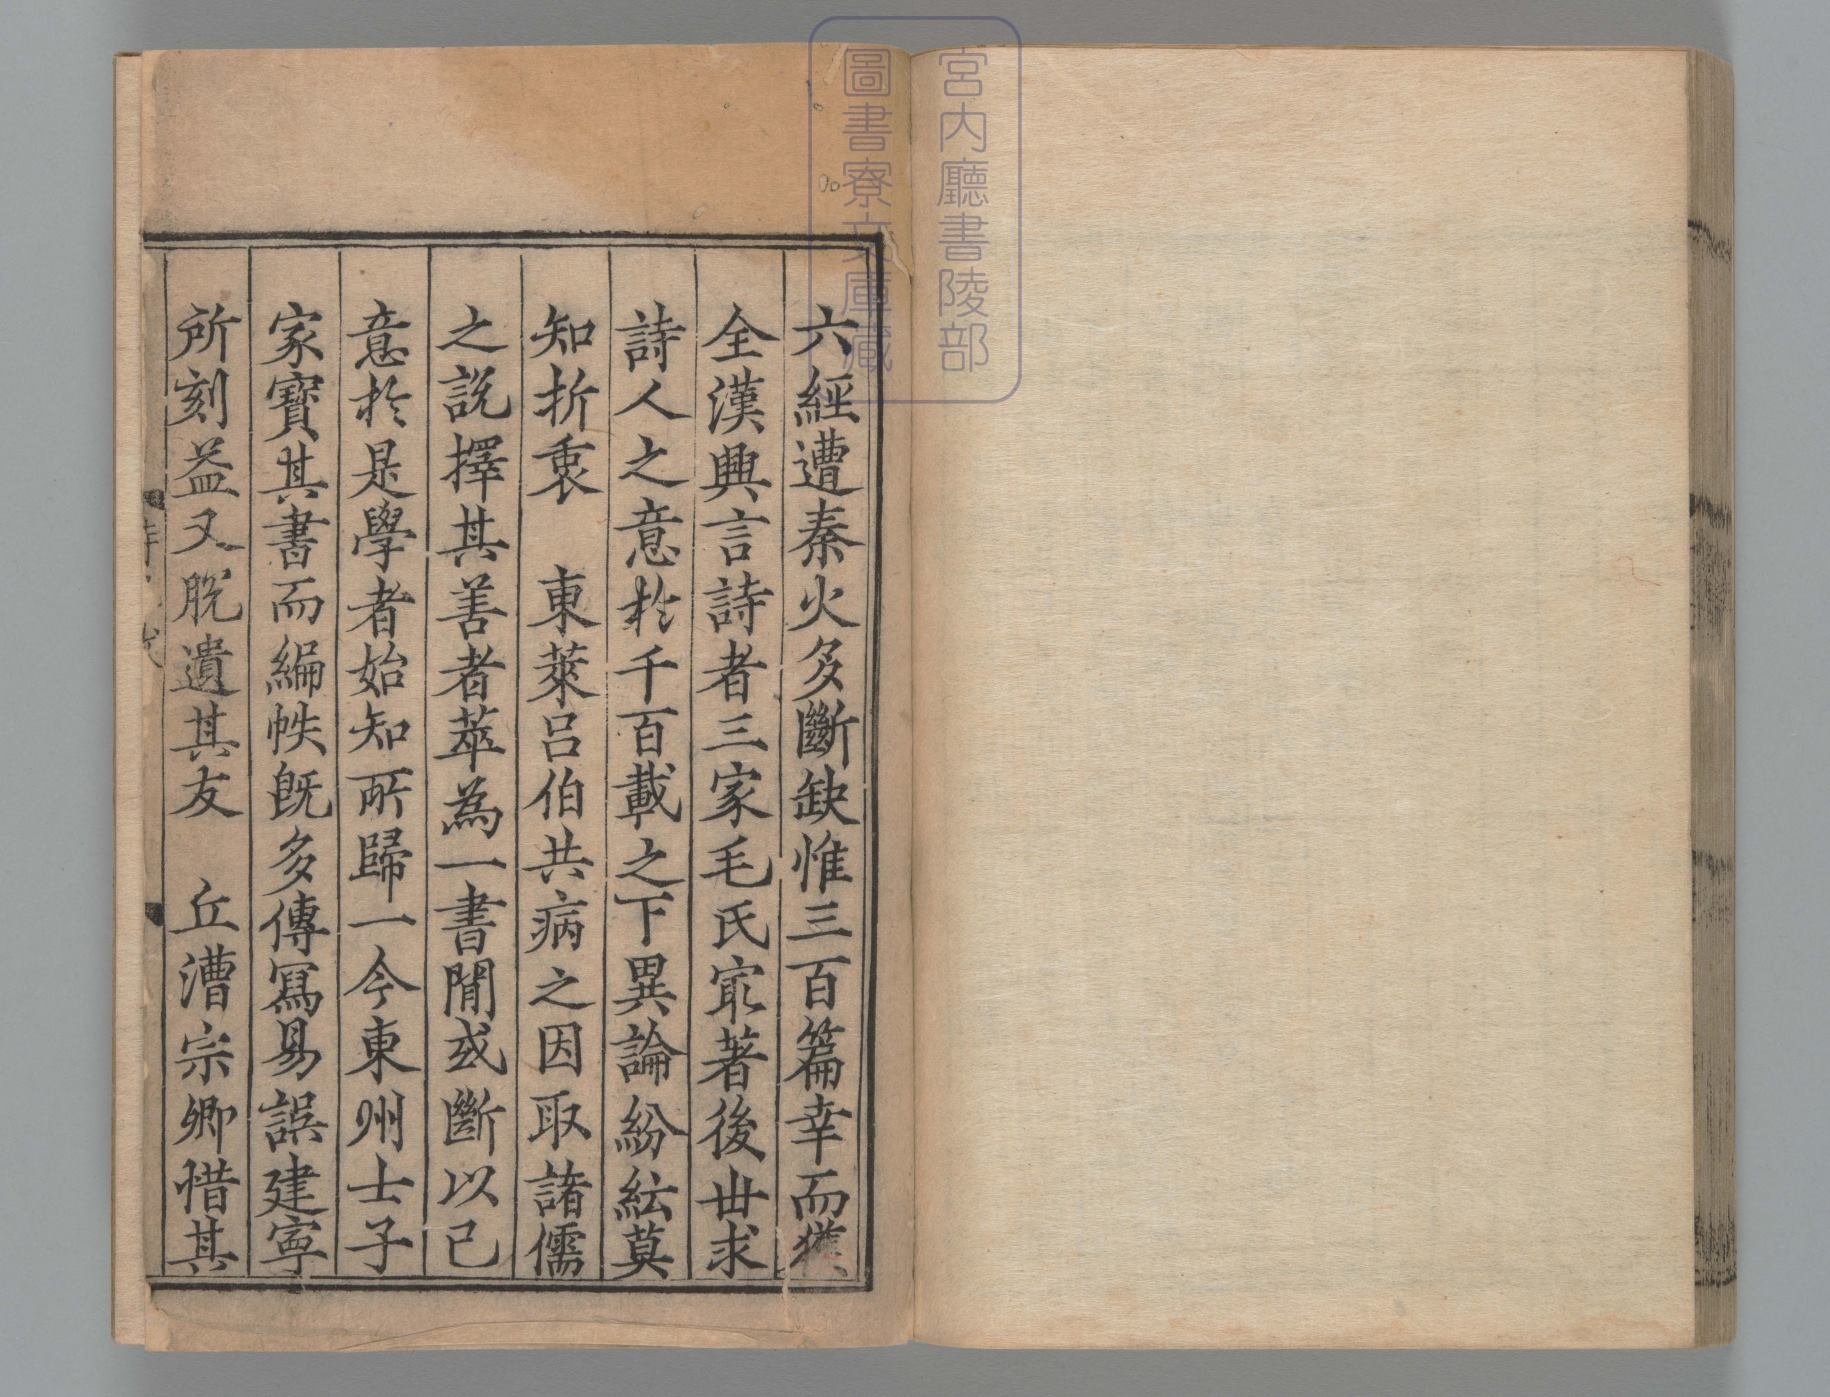 宮内廳書陵部
圖書寮文庫藏
六經遭秦火多斷缺惟三百篇幸而獲
全漢興言詩者三家毛氏㝡著後世求
詩人之意於千百載之下異論紛紜莫
知折衷　東萊呂伯共病之因取諸儒
之説擇其善者萃為一書閒或斷以己
意於是學者始知所歸一今東州士子
家寳其書而編帙既多傳寫易誤建寧
所刻益又脱遺其友　丘漕宗卿惜其